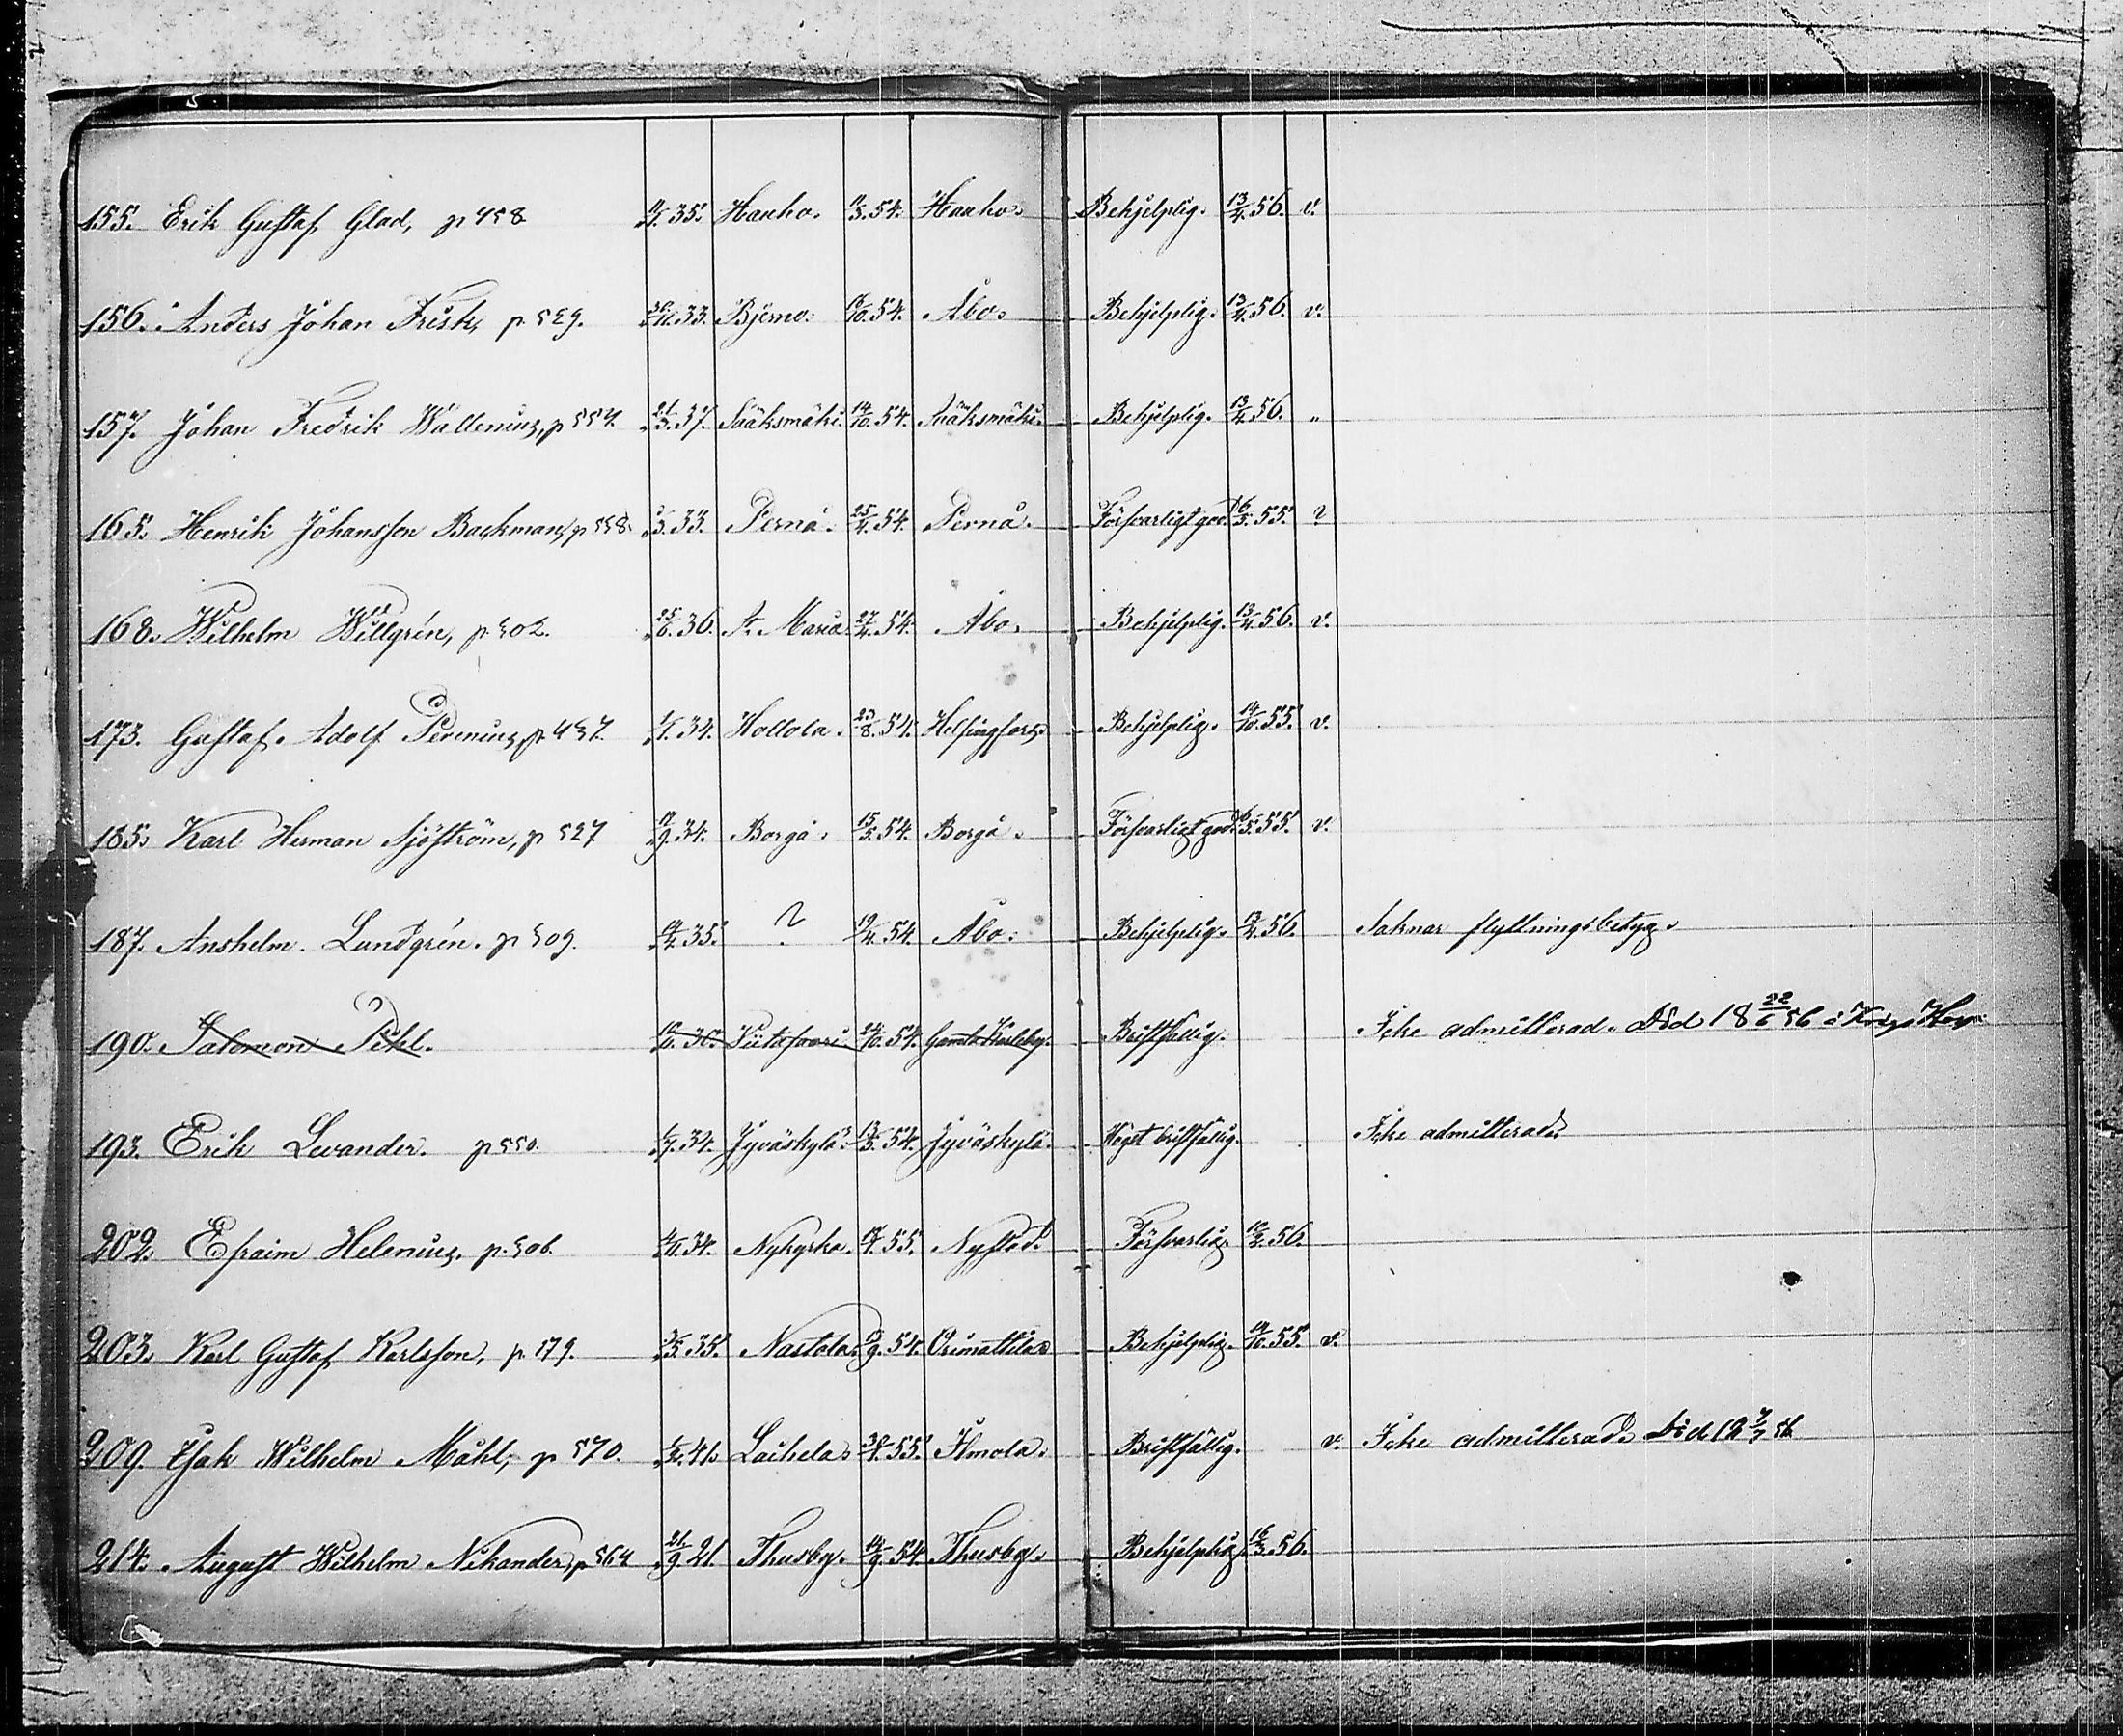 155. Erik Gustaf Glad, p 458 11/7. 35. Hauho. 11/3. 54. Hauho. Behjelplig. 13/4. 56. v.
156. Anders Johan Frisk, p. 529. 30/11. 33. Bjerno. 6/10. 54. Åbo. Behjelplig. 13/4. 56. v.
157. Johan Fredrik Wallenius, p 554. 21/3. 37. Sääksmäki. 14/10. 54. Sääksmäki. Behjelplig. 13/4. 56. „
165. Henrik Johansson Backman, p 558. 33. Perna. 25/4. 54. Pernå. Försvarligt god. 16/5. 55. ?
168. Wilhelm Willgrén, p. 502. 25/6. 36. St. Maria. 27/4. 54. Åbo. Behjelplig. 13/4. 56. v.
173. Gustaf Adolf Perenius, p. 457. 34. Hollola. 23/8. 54. Helsingfors. Behjelplig. 14/10. 55. v.
185. Karl Herman Sjöström, p 527 17/9. 34. Borgå. 15/5. 54. Borgå. Försvarligt god. 16/5. 55. v.
187. Anshelm Lundgrén. p 509. 35. ? 19/4. 54. Åbo. Behjelplig. 13/4. 56. Saknar flyttningsbetyg.
190. Salomon Pihl. 30. Viitasaari. 24/10. 54. Gamla Karleby. Bristfällig. Icke admitterad. Död 18 22/6 56 i
193. Erik Levander. p 550. 34. Jyväskylä. 13/5. 54. Jyväskylä. Högst bristfällig. Icke admitterad.
202. Efraim Helenius, p. 506. 4/11. 34. Nykyrka. 55. Nystad. Försvarlig. 10/2. 56.
203. Karl Gustaf Karlsson, p. 179. 35. Nastola. 9. 54. Orimattila. Behjelplig. 14/10. 55. v.
209. Isak Wilhelm Måhl, p 570. 41. Laihela. 55. Ilmola. Bristfällig. v. Icke admitterad. Död 18 7/7 56
214. August Wilhelm Nikander, p 564 21/9. 21. Thusby. 14/9. 54 Thusby. Behjelplig. 16/3. 56.